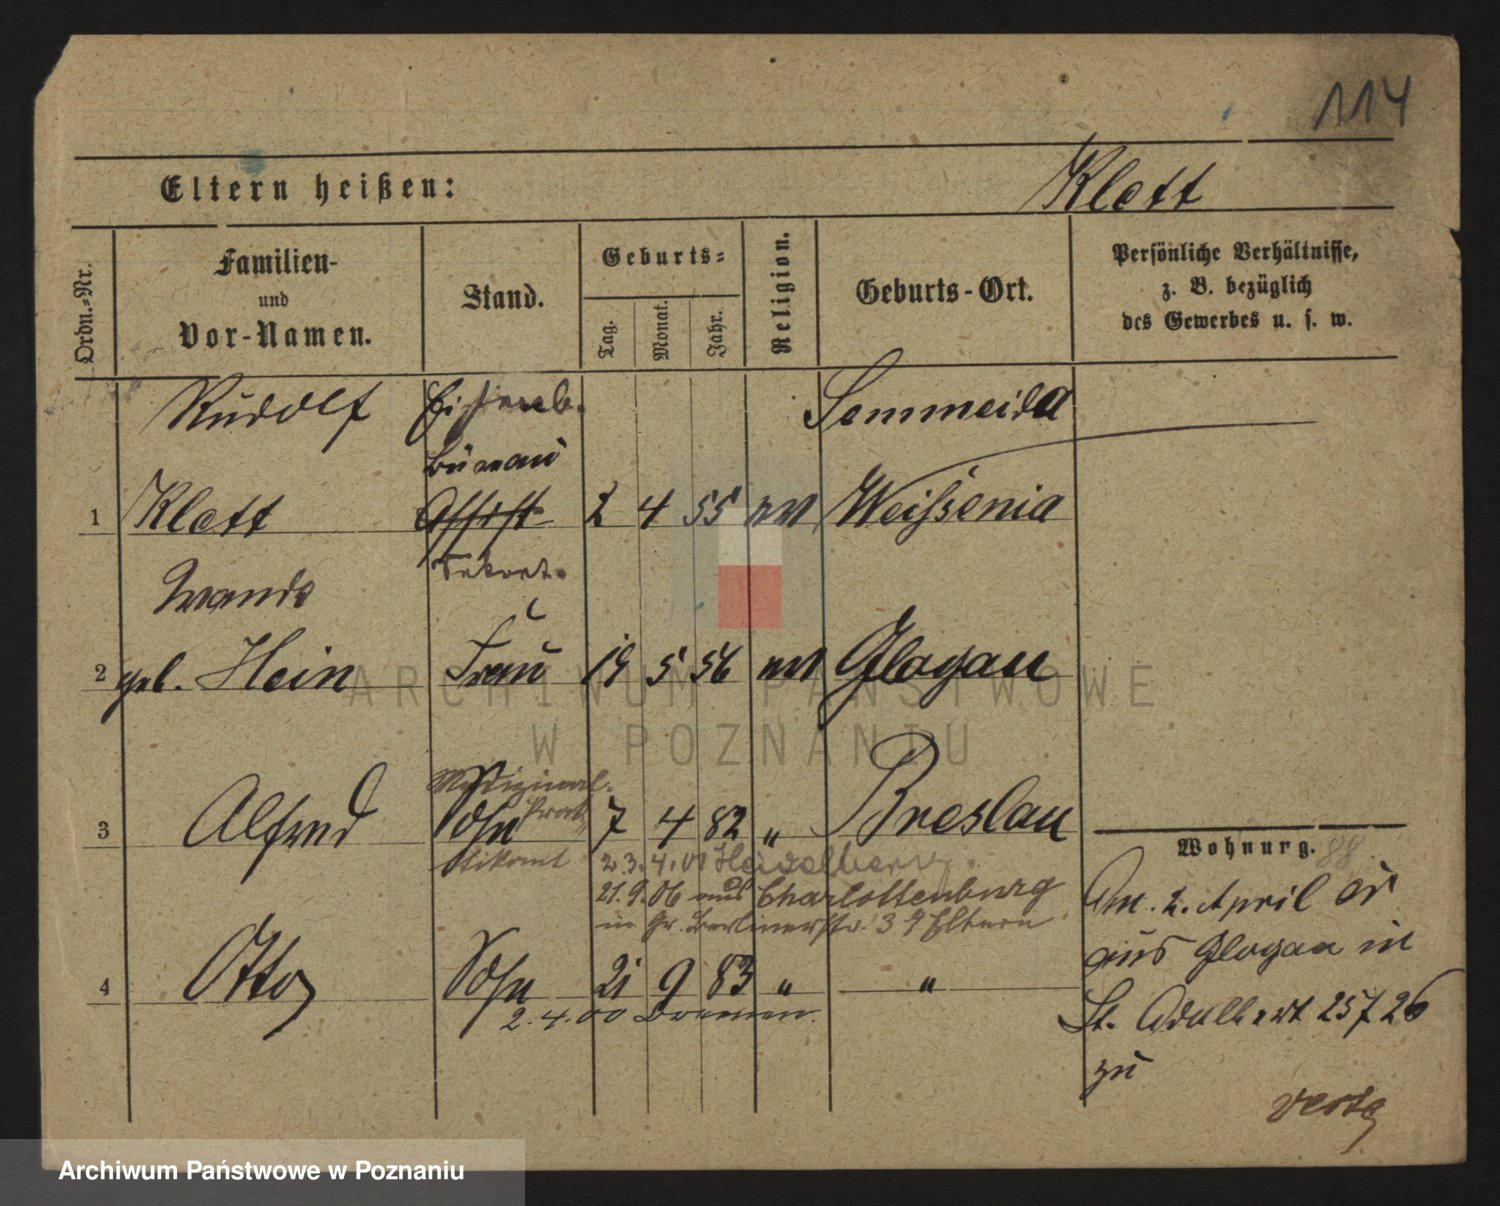 114
Eltern heißen: Klett
Ordn.-Nr.
Familien-
und
Vor-Namen.
Stand.
Geburts-
Tag.
Monat.
Jahr.
Religion.
Geburts-Ort.
Persönliche Verhältnisse,
z. B. bezüglich
des Gewerbes u. s. w.
Rudolf Eisenb. Sommeida
Büreau
1 Klett Assist 2 4 55 Weissenia
Sekret.
Wanda
2 geb. Hein Frau 19 5 56 Glogau
Medizinal-
3 Alfred Sohn Prak 7 4 82 " Breslau
tikant 2.3.4.01 Heidelberg.
21.9.06 aus Charlottenburg
in Gr. Berlinerstr. 39 Eltern
4 Otto Sohn 21 9 83 " "
2.4.00 Bremen.
Wohnung. 88
Am 2. April
aus Glogau in
St. Adalbert 25/26
zu
ARCHIWUM PAŃSTWOWE
W POZNANIU
Archiwum Państwowe w Poznaniu